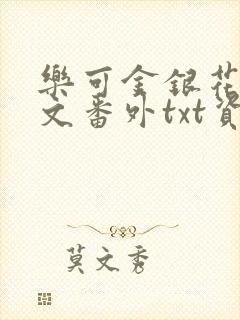 樂可金銀花
文番外txt資
莫文秀